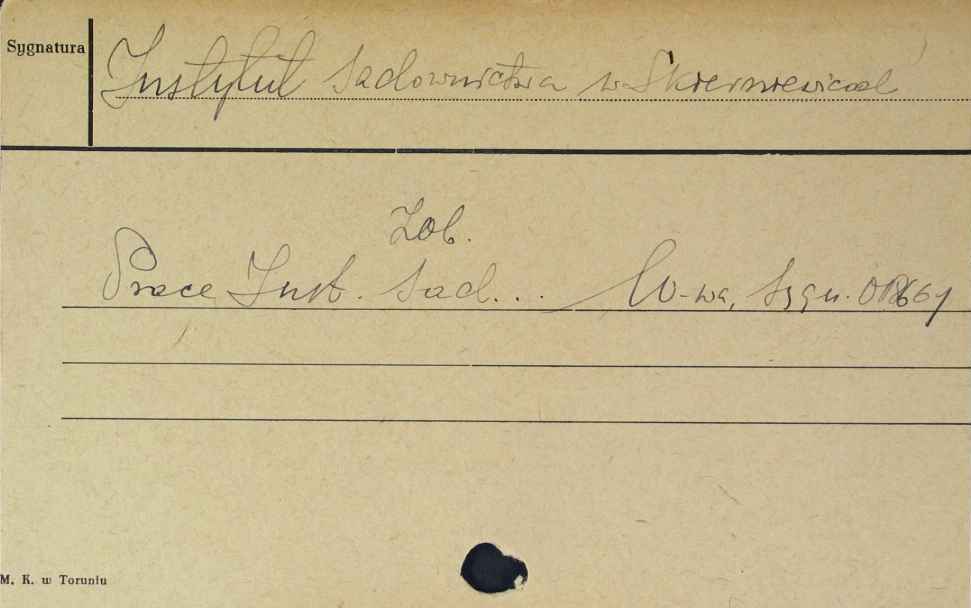 Sygnatura
Instytut Sadownictwa w Skierniewicach
Zob.
Prace Inst. Sad... W-wa, Sygn.
M. K. w Toruniu